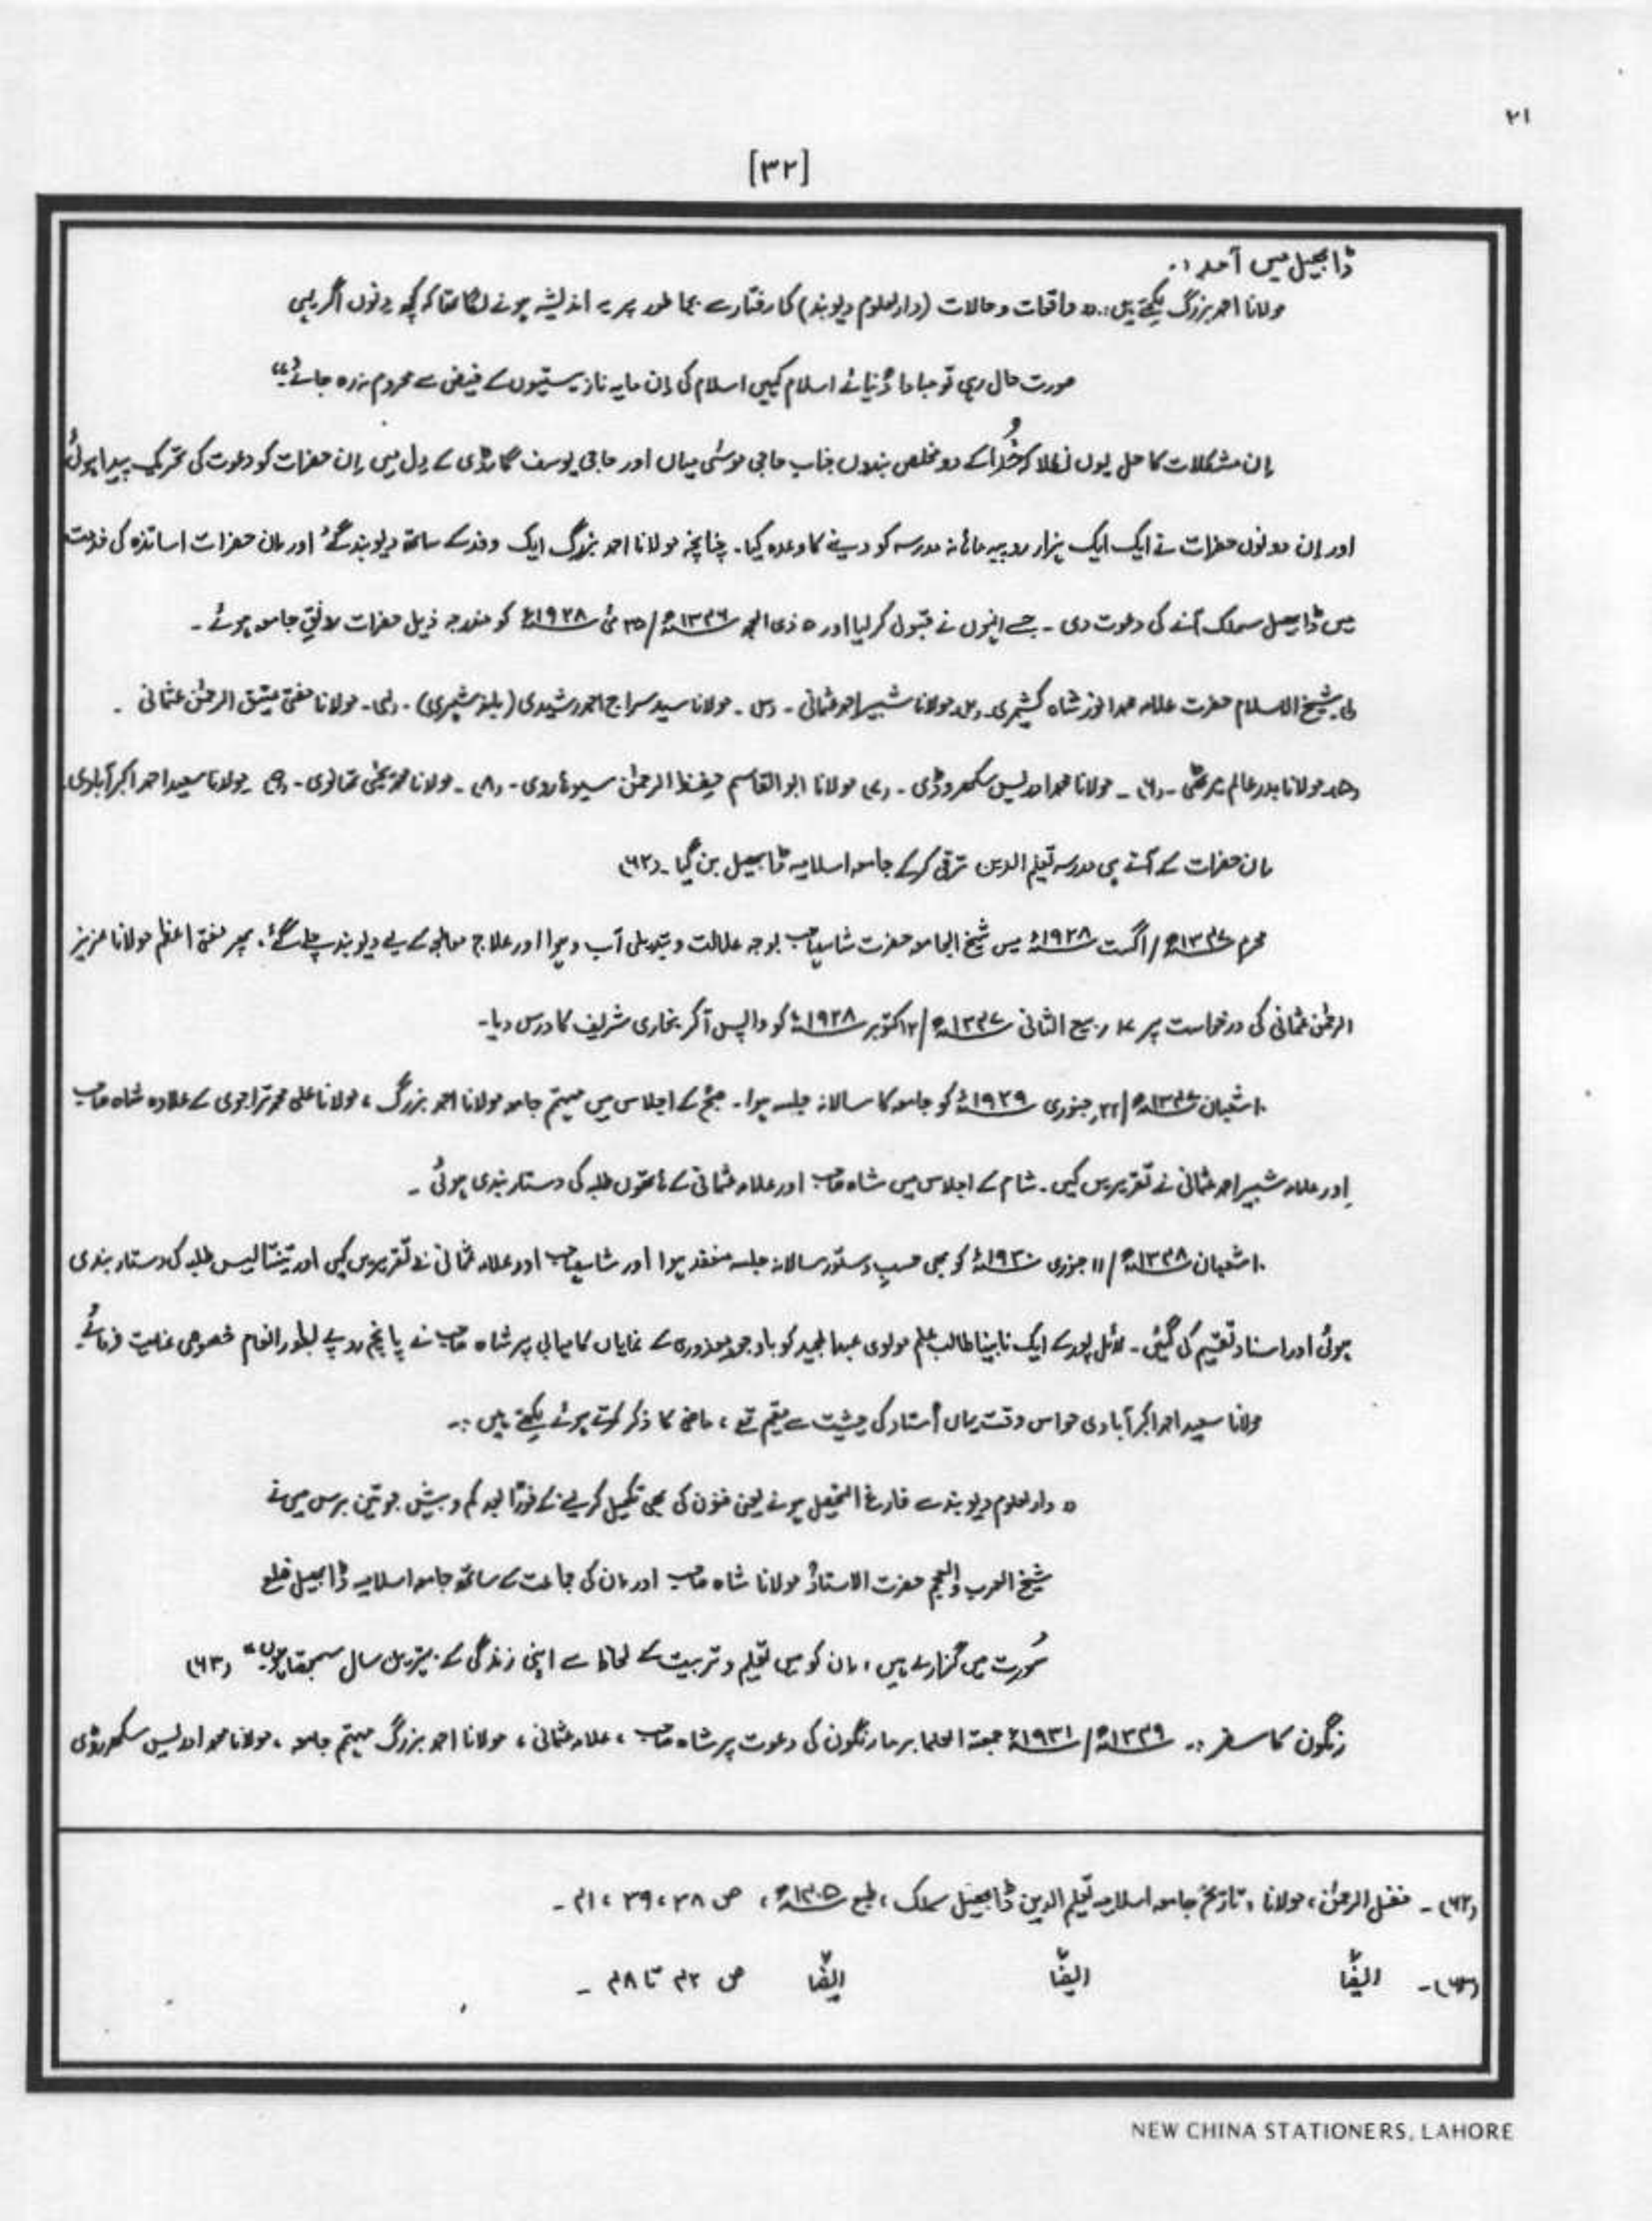 ۲۱
[۳۲]
ڈابھیل میں آمد :۔
مولانا احمد بزرگ لکھتے ہیں :۔ " واقعات و حالات (دارالعلوم دیوبند) کا رفتار سے بجا طور پر یہ اندیشہ ہونے لگا تھا کہ کچھ دنوں اگر یہی
صورت حال رہی تو مبادا دُنیائے اسلام کہیں اسلام کی اِن مایہ ناز ہستیوں کے فیض سے محروم نہ رہ جائے"
اِن مشکلات کا حل یوں نکلا کہ خُدا کے دو مخلص بندوں جناب حاجی موسٰی میاں اور حاجی یوسف گارڈی کے دل میں اِن حضرات کو دعوت کی تحریک پیدا ہوئی
اور اِن دونوں حضرات نے ایک ایک ہزار روپیہ ماہانہ مدرسہ کو دینے کا وعدہ کیا۔ چنانچہ مولانا احمد بزرگ ایک وفد کے ساتھ دیوبند گئے اور اِن حضرات اساتذہ کی خدمت
میں ڈابھیل سملک آنے کی دعوت دی ۔ جسے انہوں نے قبول کر لیا اور ۵ ذی الحجہ ۱۳۴۶ھ/ ۲۵ مئی ۱۹۲۸ء کو مندرجہ ذیل حضرات رونقِ جامعہ ہوئے ۔
(۱) شیخ الاسلام حضرت علامہ محمد انور شاہ کشمیری۔ (۲) مولانا شبیر احمد عثمانی ۔ (۳) ۔ مولانا سید سراج احمد رشیدی ۔ (۴) ۔ مولانا مفتی عتیق الرحمٰن عثمانی ۔
(۵) مولانا بدر عالم میرٹھی ۔ (۶) ۔ مولانا محمد ادریس سکھروڈی ۔ (۷) مولانا ابوالقاسم حفظ الرحمٰن سیوہاروی ۔ (۸) ۔ مولانا محمد یحیٰی تھانوی ۔ (۹) مولانا سعید احمد اکبرآبادی
اِن حضرات کے آتے ہی مدرسہ تعلیم الدین ترقی کرکے جامعہ اسلامیہ ڈابھیل بن گیا ۔ (۶۲)
محرم ۱۳۴۷ھ/ اگست ۱۹۲۸ء میں شیخ الجامعہ حضرت شاہ صاحب بوجہ علالت و تبدیلی آب و ہوا اور علاج معالجہ کے لیے دیوبند چلے گئے ۔ پھر مفتی اعظم مولانا عزیز
الرحمٰن عثمانی کی درخواست پر ۷ ربیع الثانی ۱۳۴۷ھ/ اکتوبر ۱۹۲۸ء کو واپس آ کر بخاری شریف کا درس دیا۔
۱۰ شعبان ۱۳۴۷ھ/ ۲۲ جنوری ۱۹۲۹ء کو جامعہ کا سالانہ جلسہ ہوا ۔ صبح کے اجلاس میں مہتمم جامعہ مولانا احمد بزرگ ، مولانا علی محمد تراجوی کے علاوہ شاہ صاحب
اور علامہ شبیر احمد عثمانی نے تقریریں کیں ۔ شام کے اجلاس میں شاہ صاحب اور علامہ عثمانی کے ہاتھوں طلبہ کی دستار بندی ہوئی ۔
۱۰ شعبان ۱۳۴۸ھ/ ۱۱ جنوری ۱۹۳۰ء کو بھی حسبِ دستور سالانہ جلسہ منعقد ہوا اور شاہ صاحب اور علامہ عثمانی نے تقریریں کیں اور تینتالیس طلبہ کی دستار بندی
ہوئی اور اسناد تقسیم کی گئیں ۔ لائل پور کے ایک نابینا طالب علم مولوی عبدالمجید کو باوجود معذوری کے نمایاں کامیابی پر شاہ صاحب نے پانچ روپے بطور انعام خصوصی عنایت فرمائے۔
مولانا سعید احمد اکبرآبادی جو اس وقت یہاں اُستاد کی حیثیت سے مقیم تھے ، ماضی کا ذکر کرتے ہوئے لکھتے ہیں :۔
" دارالعلوم دیوبند سے فارغ التحصیل ہونے یعنی فنون کی بھی تکمیل کر لینے کے فوراً بعد کم و بیش جو تین برس میں نے
شیخ العرب والعجم حضرت الاستاذ مولانا شاہ صاحب اور اِن کی جماعت کے ساتھ جامعہ اسلامیہ ڈابھیل ضلع
سُورت میں گزارے ہیں ، اِن کو میں تعلیم و تربیت کے لحاظ سے اپنی زندگی کے بہترین سال سمجھتا ہوں" (۶۳)
رنگون کا سفر :۔ ۱۳۴۹ھ/ ۱۹۳۱ء جمعیۃ العلما برما رنگون کی دعوت پر شاہ صاحب ، علامہ عثمانی ، مولانا احمد بزرگ مہتمم جامعہ ، مولانا محمد ادریس سکھروڈی
(۶۲) ۔ فضل الرحمٰن ، مولانا ، تاریخ جامعہ اسلامیہ تعلیم الدین ڈابھیل سملک ، طبع ۱۴۰۵ھ ، ص ۳۸ ، ۳۹ ، ۴۱ ۔
(۶۳) ۔ ایضًا ایضًا ایضًا ص ۴۲ تا ۴۸ ۔
NEW CHINA STATIONERS, LAHORE